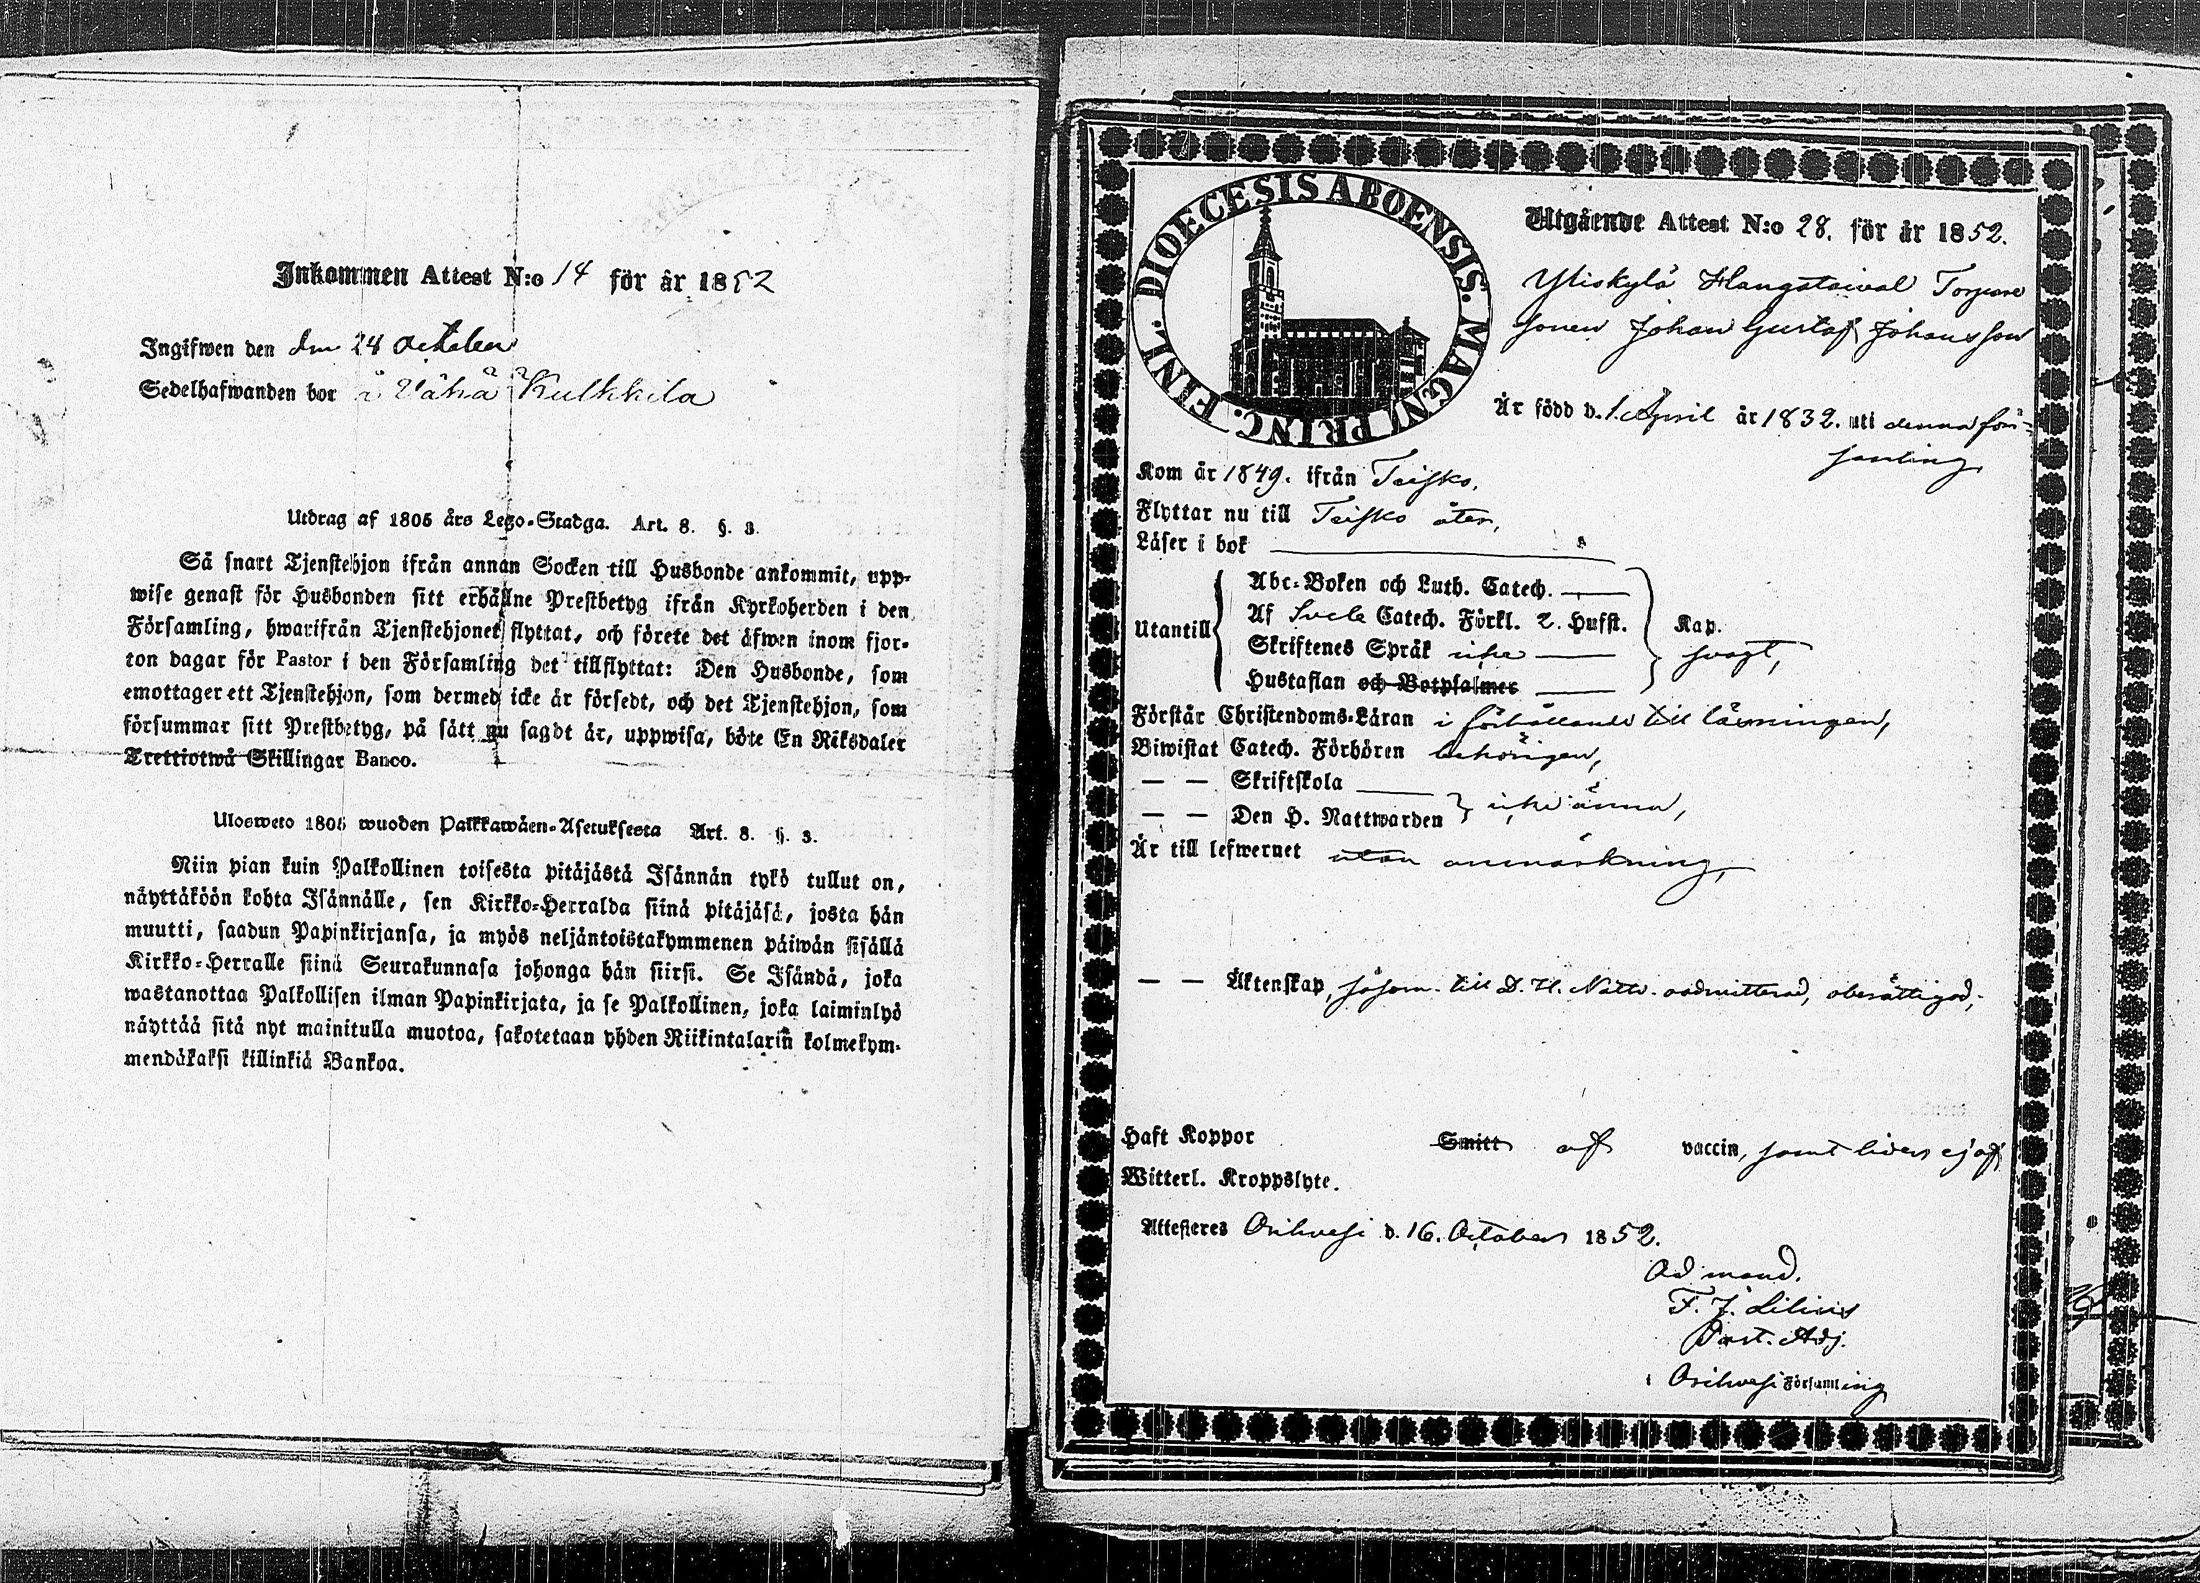 Inkommen Attest N:o 14 för år 1852
Ingifwen den den 24 October
Sedelhafwanden bor i Vähä Kulkkila
Utdrag af 1805 års Lego-Stadga. Art. 8. §. 3.
Så snart Tjenstehjon ifrån annan Socken till Husbonde ankommit, upp-
wise genast för Husbonden sitt erhållne Prestbetyg ifrån Kyrkoherden i den
Församling, hwarifrån Tjenstehjonet flyttat, och förete det äfwen inom fjor-
ton dagar för Pastor i den Församling det tillflyttat: Den Husbonde, som
emottager ett Tjenstehjon, som dermed icke är försedt, och det Tjenstehjon, som
försummar sitt Prestbetyg, på sätt nu sagdt är, uppwisa, böte En Riksdaler
Trettiotwå Skillingar Banco.
Ulosweto 1805 wuoden Palkkawäen-Asetuksesta Art. 8. §. 3.
Niin pian kuin Palkollinen toisesta pitäjästä Isännän tykö tullut on,
näyttäköön kohta Isännälle, sen Kirkko-Herralda siinä pitäjäsä, josta hän
muutti, saadun Papinkirjansa, ja myös neljäntoistakymmenen päiwän sisällä
Kirkko-Herralle siinä Seurakunnasa johonga hän siirsi. Se Isändä, joka
wastanottaa Palkollisen ilman Papinkirjata, ja se Palkollinen, joka laiminlyö
näyttää sitä nyt mainitulla muotoa, sakotetaan yhden Riikintalarin kolmekym-
mendäkaksi killinkiä Bankoa.
DIOECESIS ABOENSIS. MAGNI PRINC. FINL.
Utgående Attest N:o 28. för år 1852.
Yliskylä Hangataival Torpare
sonen Johan Gustaf Johansson
Är född d. 1. April år 1832. uti denna för-
samling
Kom år 1849. ifrån Teisko,
Flyttar nu till Teisko åter,
Läser i bok
Abc-Boken och Luth. Catech.
Utantill Af Svebe Catech. Förkl. 2. Hufst. Kap.
Skriftenes Språk icke svagt,
Hustaflan och Botpsalmer
Förstår Christendoms-Läran i förhållande till läsningen,
Biwistat Catech. Förhören behörigen,
— — Skriftskola
— — Den H. Nattwarden icke ännu,
Är till lefwernet utan anmärkning,
— — Äktenskap, såsom till D. H. Nattv. oadmitterad, oberättigad,
Haft Koppor Smitt af vaccin, samt lider ej af
Witterl. Kroppslyte.
Attesteres Orihvesi d. 16. October 1852.
Ad mand.
F. J. Lilius
Past. Adj.
i Orihvesi Församling